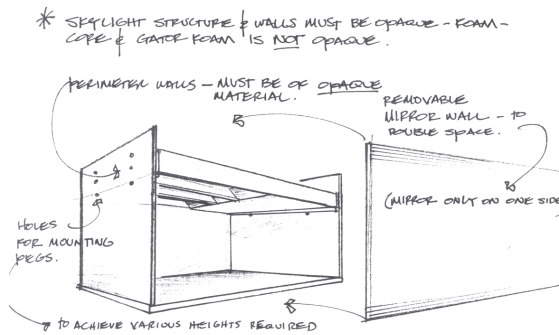 * SKYLIGHT STRUCTURE & WALLS MUST BE OPAQUE - FOAM-
CORE & GATOR FOAM IS NOT OPAQUE.
PERIMETER WALLS - MUST BE OF OPAQUE
MATERIAL.
REMOVABLE
MIRROR WALL - TO
DOUBLE SPACE.
(MIRROR ONLY ON ONE SIDE
HOLES
FOR MOUNTING
PEGS.
TO ACHIEVE VARIOUS HEIGHTS REQUIRED